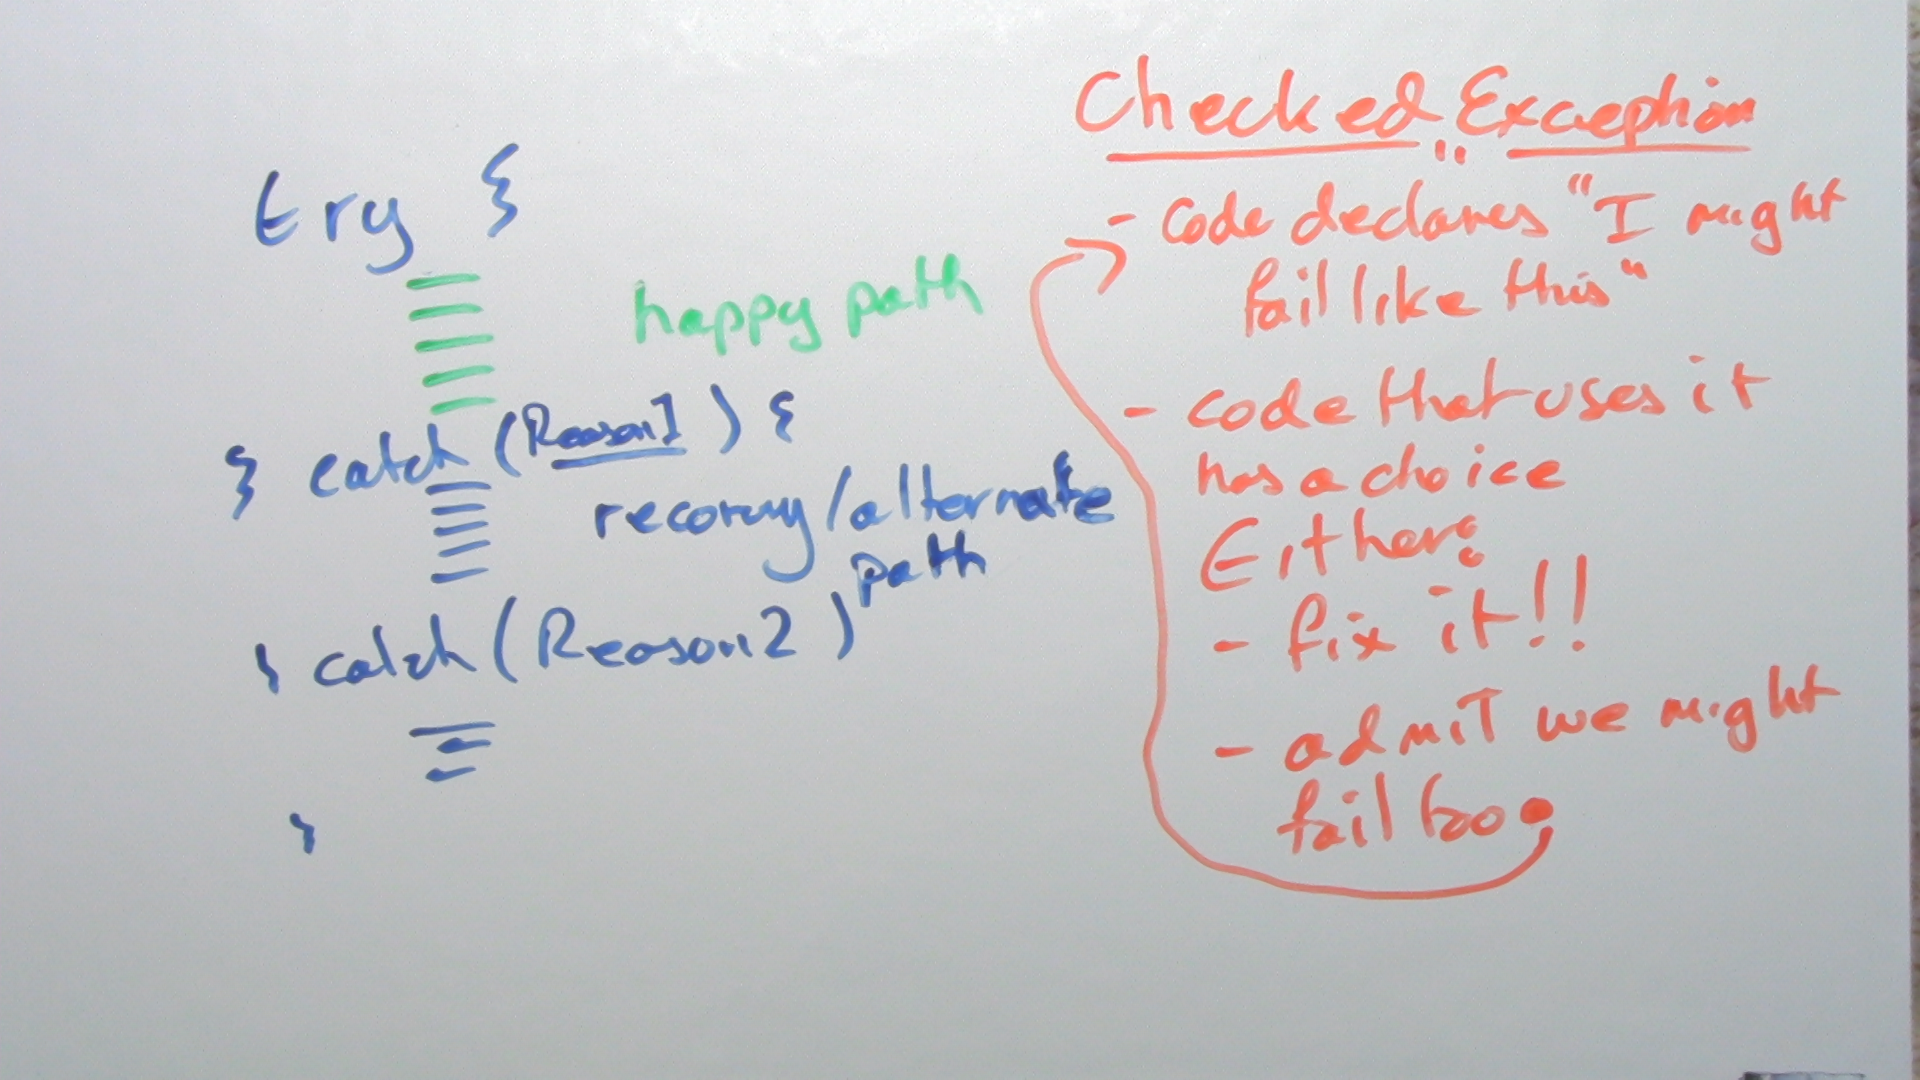 try {
happy path
} catch (Reason1) {
recovery/alternate
path
} catch (Reason2)
}
Checked Exception
- code declares "I might
fail like this"
- code that uses it
has a choice
Either:
- fix it!!
- admit we might
fail too